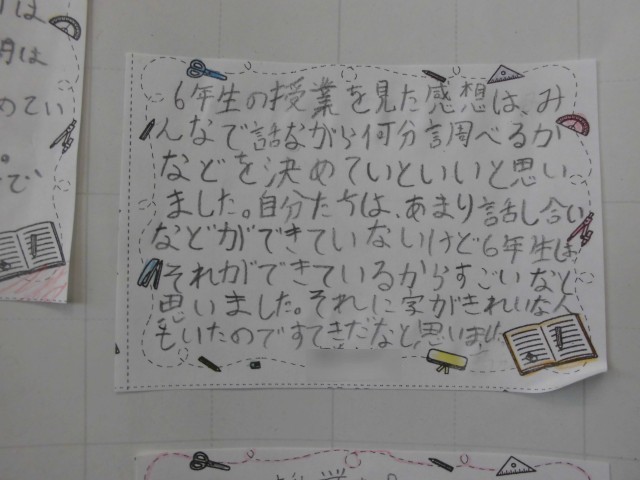 6年生の授業を見た感想は、み
んなで話ながら何分調べるか
などを決めていていいと思い
ました。自分たちは、あまり話し合い
などができていないけど6年生は
それができているからすごいなと
思いました。それに字がきれいな人
もいたのですてきだなと思いました